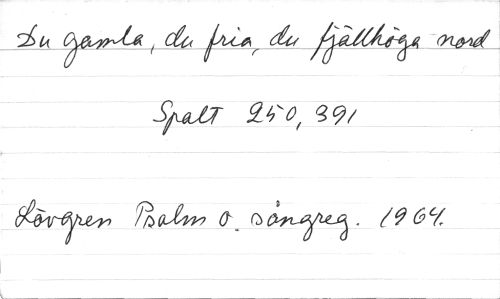 Du gamla, du fria, du fjällhöga nord
Spalt 250, 391
Lövgren Psalm o. sångreg. 1964.